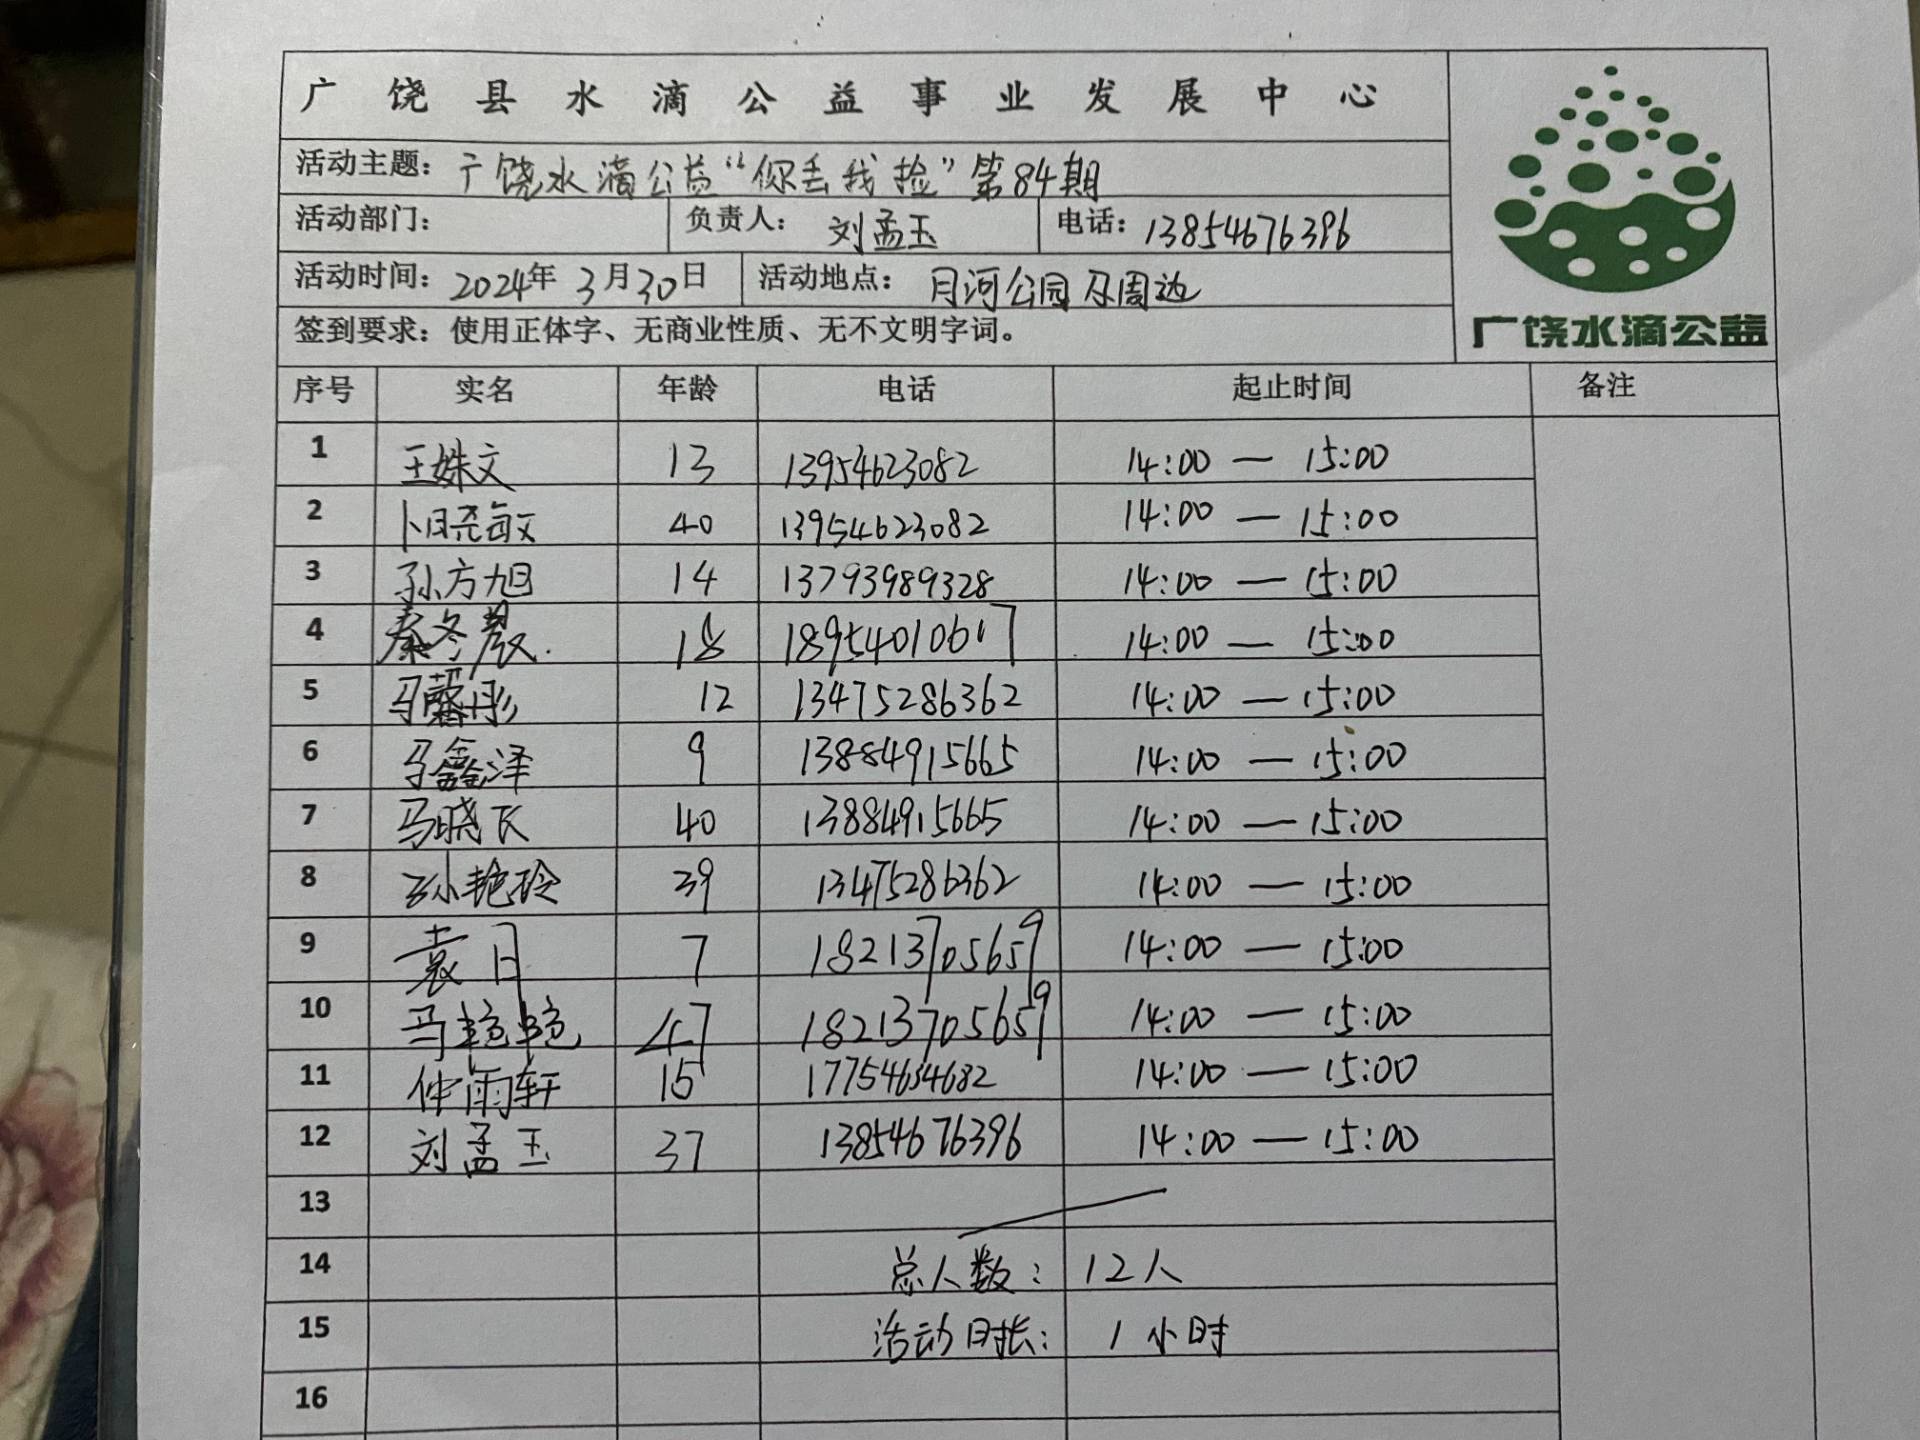 广饶县水滴公益事业发展中心
活动主题：广饶水滴公益“你丢我捡”第84期
活动部门： 负责人：刘孟玉 电话：13854676396
活动时间：2024年3月30日 活动地点：月河公园及周边
签到要求：使用正体字、无商业性质、无不文明字词。
广饶水滴公益
序号 实名 年龄 电话 起止时间 备注
1 王姝文 13 13954623082 14:00—15:00
2 卜晓敏 40 13954623082 14:00—15:00
3 孙方旭 14 13793989328 14:00—15:00
4 秦冬 18954010617 14:00—15:00
5 马馨彤 12 13475286362 14:00—15:00
6 马鑫泽 9 13884915665 14:00—15:00
7 马晓飞 40 13884915665 14:00—15:00
8 孙艳玲 39 13475286362 14:00—15:00
9 袁 7 18213705659 14:00—15:00
10 马艳艳 47 18213705659 14:00—15:00
11 仲雨轩 15 17754634682 14:00—15:00
12 刘孟玉 37 13854676396 14:00—15:00
13
14 总人数：12人
15 活动时长：1小时
16